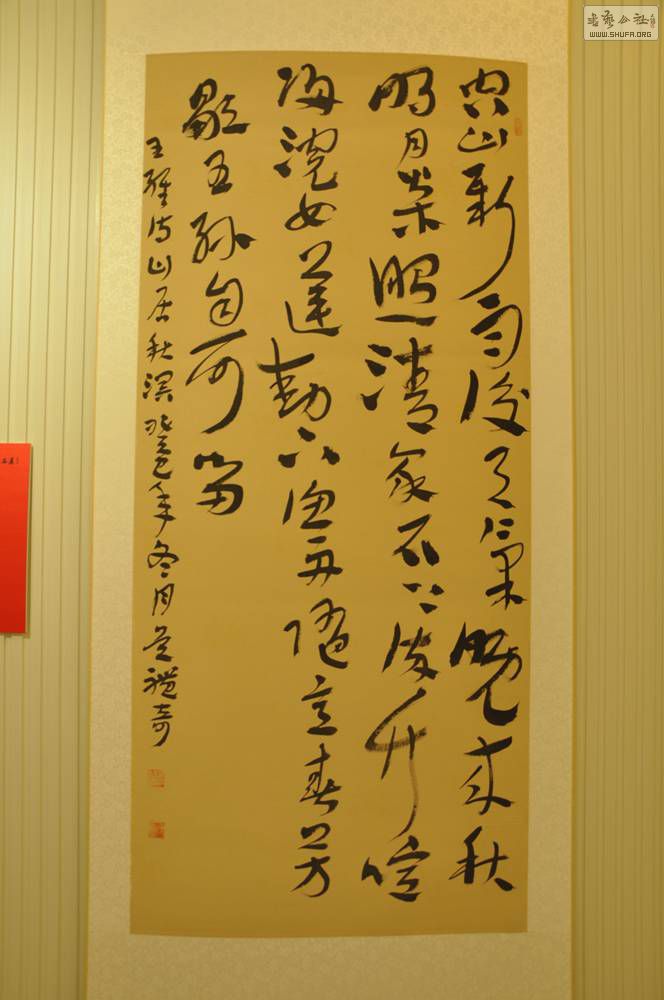 書藝公社
WWW.SHUFA.ORG
空山新雨後天氣晚來秋
明月松照清泉石上流竹喧
歸浣女蓮動下漁舟隨意春芳
歇王孫自可留
王維詩山居秋溟癸巳年冬月吴禮奇